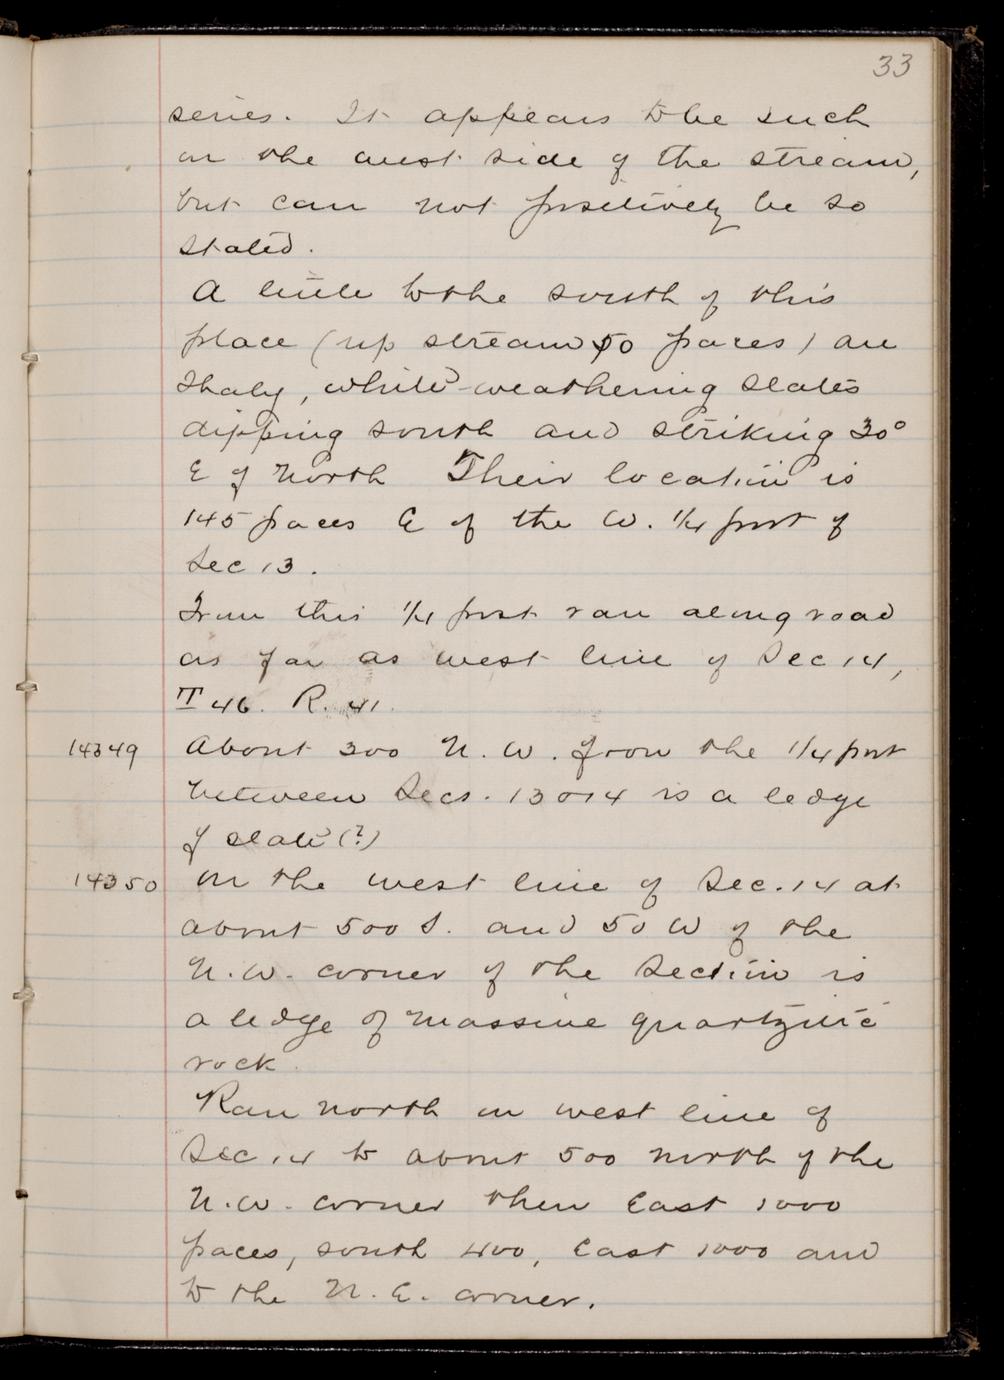 33
series. It appears to be such
on the west side of the stream,
but can not positively be so
stated.
A little to the south of this
place (up stream 50 paces) are
shaly, white-weathering slates
dipping south and striking 30°
E of North Their location is
145 paces E of the W. 1/4 post of
Sec 13.
From this 1/4 post ran along road
as far as west line of Sec 14,
T 46. R. 41.
14349 About 300 N. W. from the 1/4 post
between Secs. 13 & 14 is a ledge
of slate (?)
14350 On the west line of Sec. 14 at
about 500 S. and 50 W of the
N. W. corner of the Section is
a ledge of massive quartzitic
rock.
Ran north on west line of
Sec 14 to about 500 north of the
N. W. corner then East 1000
paces, south 400, East 1000 and
to the N. E. corner.